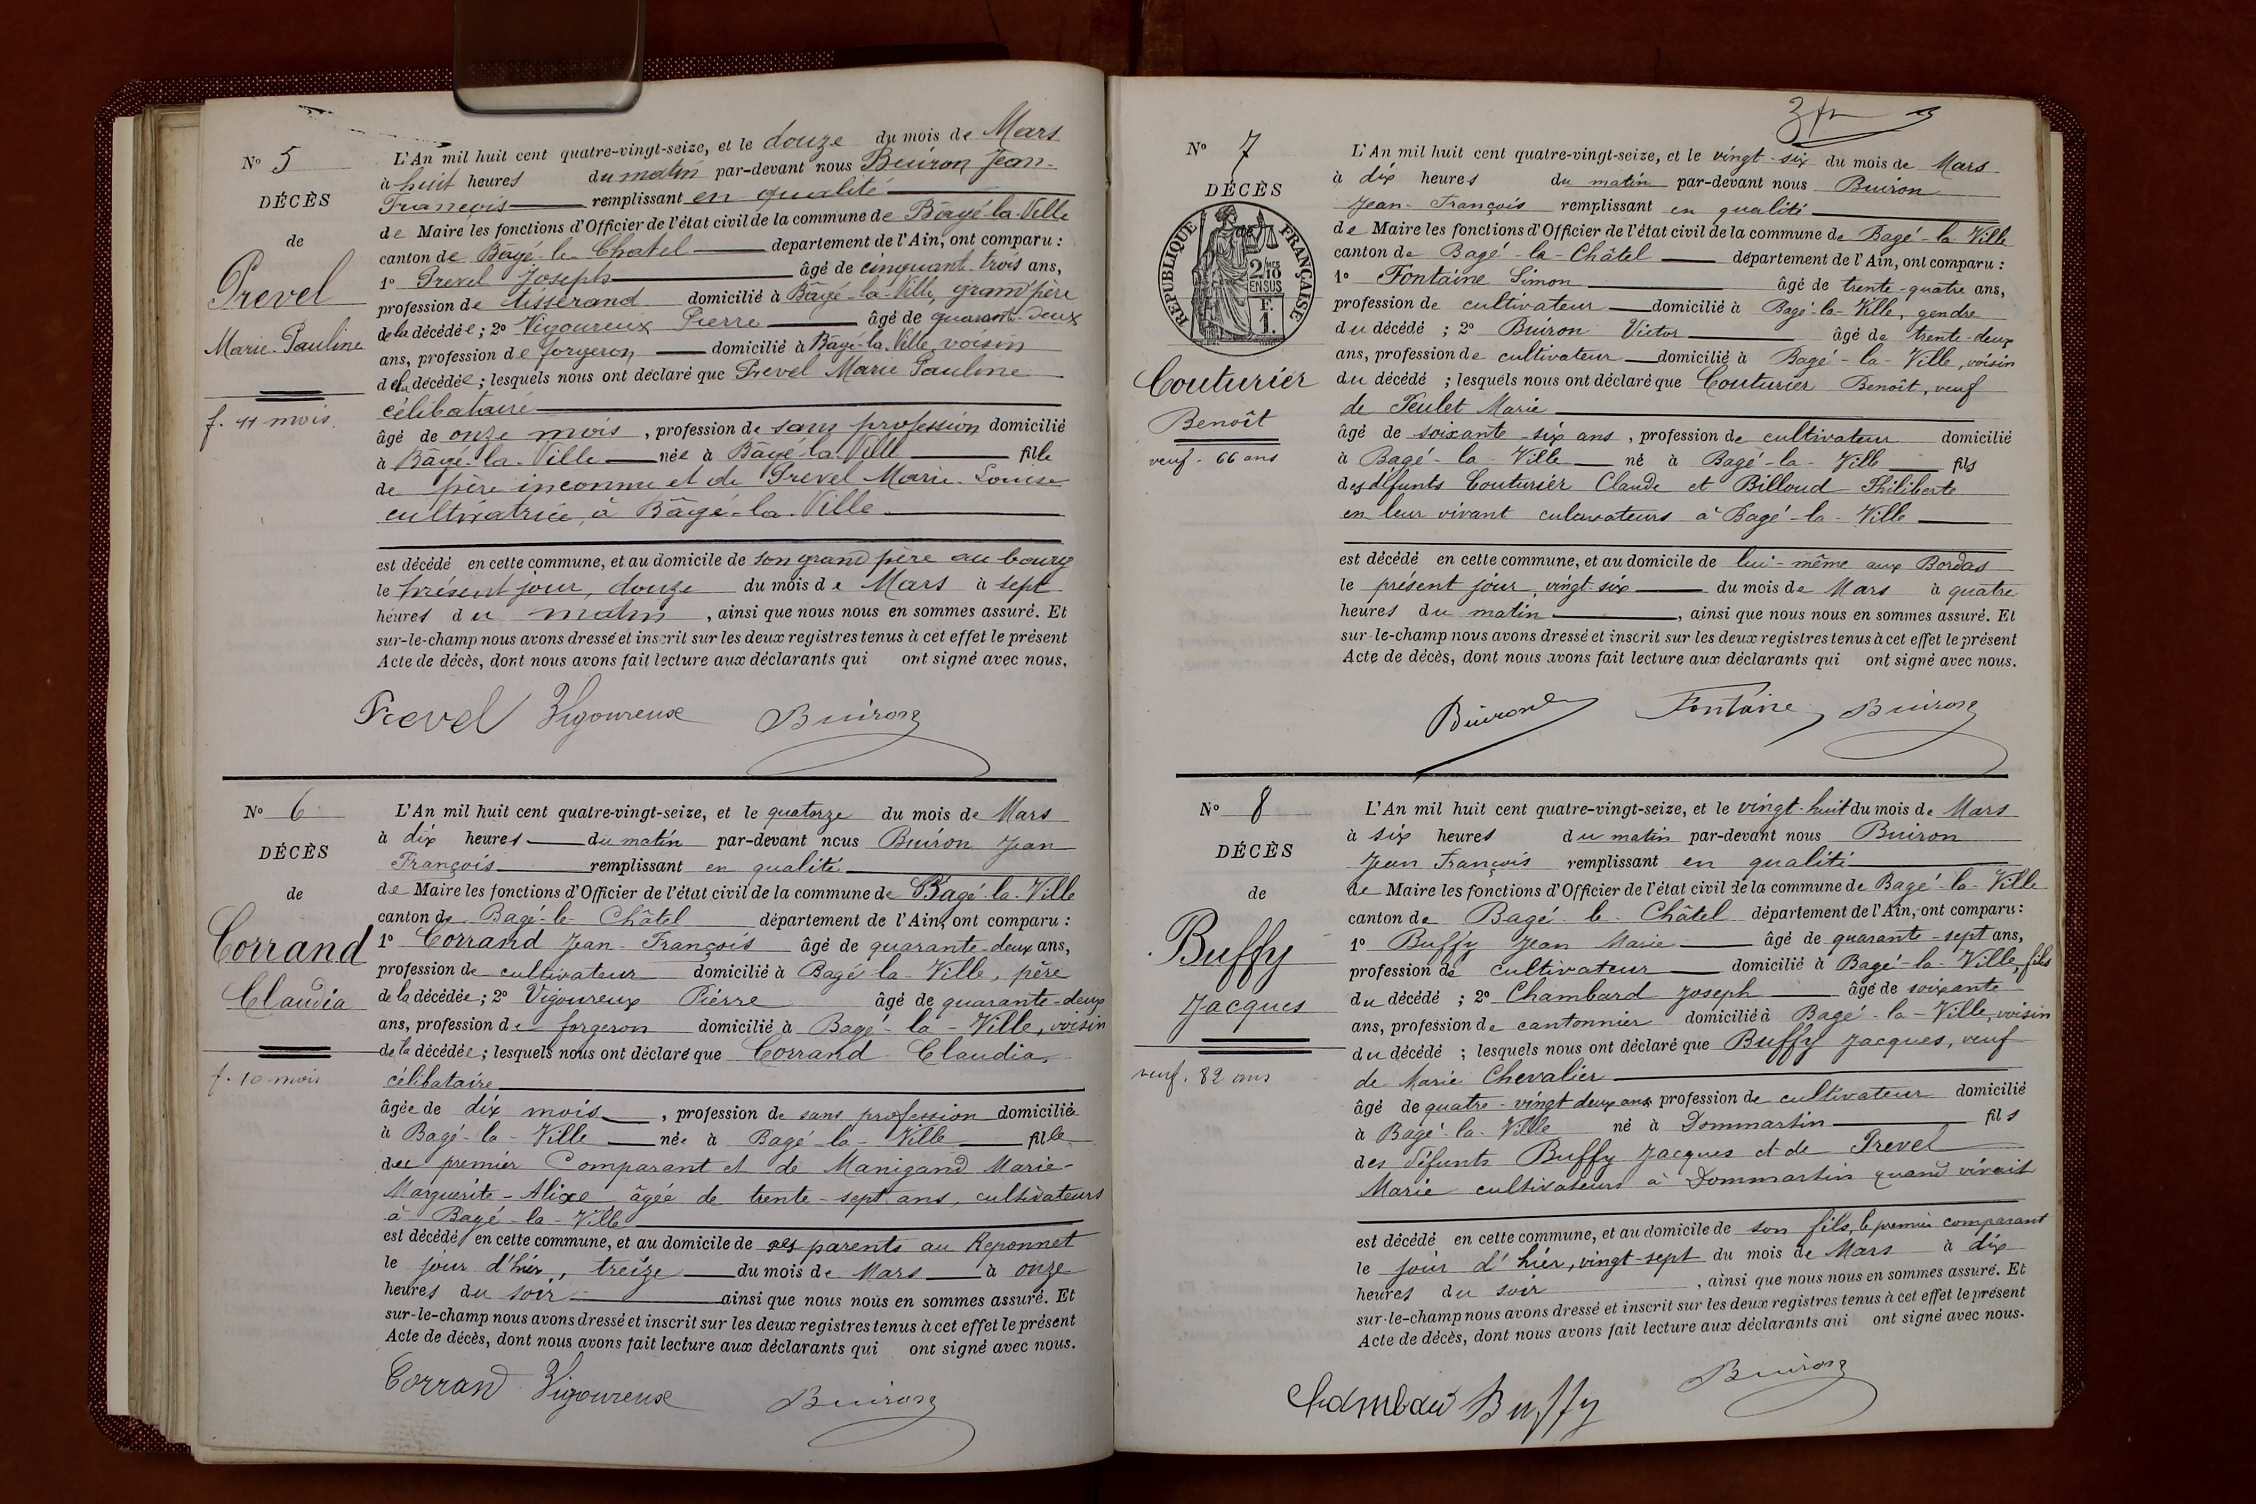 N° 5
DÉCÈS
de
Prevel
Marie-Pauline
f. 11 mois.
L'An mil huit cent quatre-vingt-seize, et le douze du mois de Mars
à huit heures du matin par-devant nous Buiron Jean-
François remplissant en qualité
de Maire les fonctions d'Officier de l'état civil de la commune de Bâgé-la-Ville
canton de Bâgé-le-Chatel département de l'Ain, ont comparu :
1° Prevel Joseph âgé de cinquante-trois ans,
profession de tisserand domicilié à Bâgé-la-Ville, grand'père
de la décédée ; 2° Vigoureux Pierre âgé de quarante-deux
ans, profession de forgeron domicilié à Bâgé-la-Ville, voisin
de la décédée ; lesquels nous ont déclaré que Prevel Marie Pauline
célibataire
âgé de onze mois, profession de sans profession domicilié
à Bâgé-la-Ville née à Bâgé-la-Ville fille
de père inconnu et de Prevel Marie-Louise
cultivatrice, à Bâgé-la-Ville
est décédé en cette commune, et au domicile de son grand père au bourg
le présent jour, douze du mois de Mars à sept
heures du matin, ainsi que nous nous en sommes assuré. Et
sur-le-champ nous avons dressé et inscrit sur les deux registres tenus à cet effet le présent
Acte de décès, dont nous avons fait lecture aux déclarants qui ont signé avec nous.
Prevel Vigoureux Buiron
N° 6
DÉCÈS
de
Corrand
Claudia
f. 10 mois
L'An mil huit cent quatre-vingt-seize, et le quatorze du mois de Mars
à dix heures du matin par-devant nous Buiron Jean
François remplissant en qualité
de Maire les fonctions d'Officier de l'état civil de la commune de Bagé-la-Ville
canton de Bagé-le-Châtel département de l'Ain, ont comparu :
1° Corrand Jean-François âgé de quarante-deux ans,
profession de cultivateur domicilié à Bagé-la-Ville, père
de la décédée ; 2° Vigoureux Pierre âgé de quarante-deux
ans, profession de forgeron domicilié à Bagé-la-Ville, voisin
de la décédée ; lesquels nous ont déclaré que Corrand Claudia,
célibataire
âgée de dix mois, profession de sans profession domicilié
à Bagé-la-Ville née à Bagé-la-Ville fille
du premier Comparant et de Manigand Marie-
Marguerite-Alixe âgée de trente-sept ans, cultivateurs
à Bagé-la-Ville
est décédé en cette commune, et au domicile de ses parents au Reponnet
le jour d'hier, treize du mois de Mars à onze
heures du soir ainsi que nous nous en sommes assuré. Et
sur-le-champ nous avons dressé et inscrit sur les deux registres tenus à cet effet le présent
Acte de décès, dont nous avons fait lecture aux déclarants qui ont signé avec nous.
Corrand Vigoureux Buiron
N° 7
DÉCÈS
RÉPUBLIQUE FRANÇAISE
2/10 EN SUS
F.
1.
Couturier
Benoît
veuf - 66 ans
L'An mil huit cent quatre-vingt-seize, et le vingt-six du mois de Mars
à dix heures du matin par-devant nous Buiron
Jean-François remplissant en qualité
de Maire les fonctions d'Officier de l'état civil de la commune de Bagé-la-Ville
canton de Bagé-le-Châtel département de l'Ain, ont comparu :
1° Fontaine Simon âgé de trente-quatre ans,
profession de cultivateur domicilié à Bagé-la-Ville, gendre
du décédé ; 2° Buiron Victor âgé de trente-deux
ans, profession de cultivateur domicilié à Bagé-la-Ville, voisin
du décédé ; lesquels nous ont déclaré que Couturier Benoît, veuf
de Feulet Marie
âgé de soixante-six ans, profession de cultivateur domicilié
à Bagé-la-Ville né à Bagé-la-Ville fils
des défunts Couturier Claude et Billoud Philiberte
en leur vivant à Bagé-la-Ville
est décédé en cette commune, et au domicile de lui-même aux Bordas
le présent jour, vingt-six du mois de Mars à quatre
heures du matin, ainsi que nous nous en sommes assuré. Et
sur-le-champ nous avons dressé et inscrit sur les deux registres tenus à cet effet le présent
Acte de décès, dont nous avons fait lecture aux déclarants qui ont signé avec nous.
Buiron Fontaine Buiron
N° 8
DÉCÈS
de
Buffy
Jacques
veuf. 82 ans
L'An mil huit cent quatre-vingt-seize, et le vingt-huit du mois de Mars
à six heures du matin par-devant nous Buiron
Jean François remplissant en qualité
de Maire les fonctions d'Officier de l'état civil de la commune de Bagé-la-Ville
canton de Bagé-le-Châtel département de l'Ain, ont comparu :
1° Buffy Jean Marie âgé de quarante-sept ans,
profession de cultivateur domicilié à Bagé-la-Ville, fils
du décédé ; 2° Chambard Joseph âgé de soixante
ans, profession de cantonnier domicilié à Bagé-la-Ville, voisin
du décédé ; lesquels nous ont déclaré que Buffy Jacques, veuf
de Marie Chevalier
âgé de quatre-vingt deux ans profession de cultivateur domicilié
à Bagé-la-Ville né à Dommartin fils
des défunts Buffy Jacques et de Prevel
Marie cultivateurs à Dommartin quand vivait
est décédé en cette commune, et au domicile de son fils, le premier comparant
le jour d'hier, vingt-sept du mois de Mars à dix
heures du soir, ainsi que nous nous en sommes assuré. Et
sur-le-champ nous avons dressé et inscrit sur les deux registres tenus à cet effet le présent
Acte de décès, dont nous avons fait lecture aux déclarants qui ont signé avec nous.
Chambard Buffy Buiron